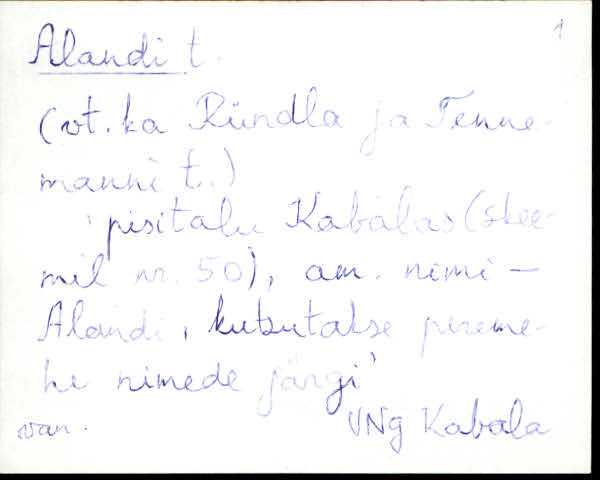 1
Alandi t.
(vt. ka Ründla ja Tenne-
manni t.)
'pisitalu Kabalas (skee-
mil nr. 50), am. nimi –
Alandi, kutsutakse pereme-
he nimede järgi'
van. VNg Kabala